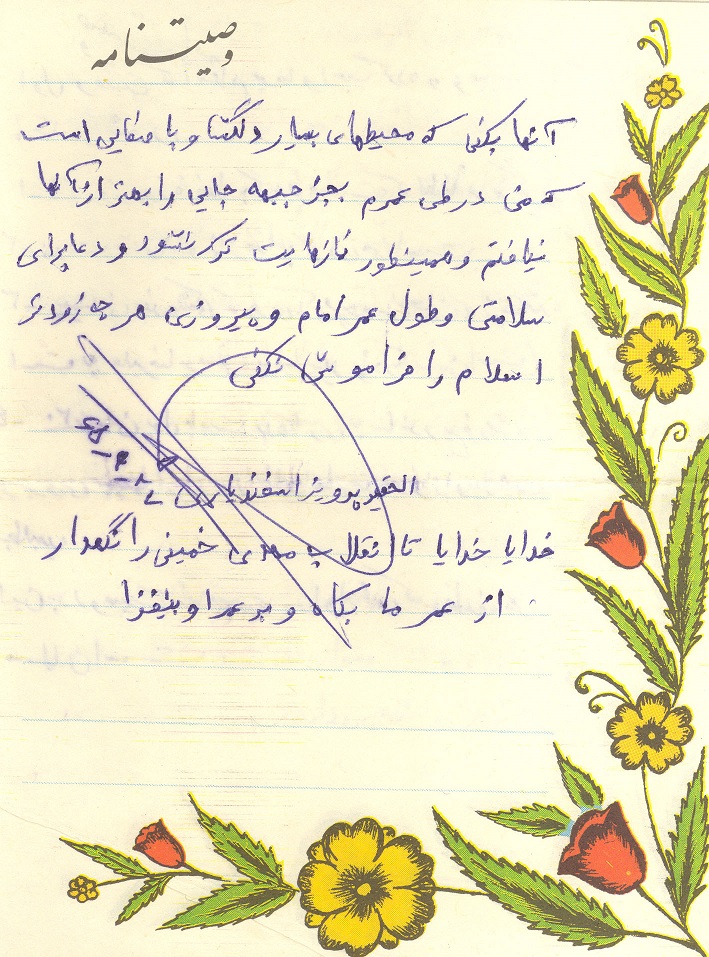 وصیتنامه
آنها بکنی که محیطهای بسیار دلگشا و با صفایی است
که من در طی عمرم بجز جبهه جایی را بهتر از آنها
نیافتم و همینطور نمازهایت ترک نشود و دعا برای
سلامتی و طول عمر امام و پیروزی هر چه زودتر
اسلام را فراموش نکنی
الحقیر پرویز اسفندیاری
خدایا خدایا تا انقلاب مهدی خمینی را نگهدار
از عمر ما بکاه و بر عمر او بیفزا